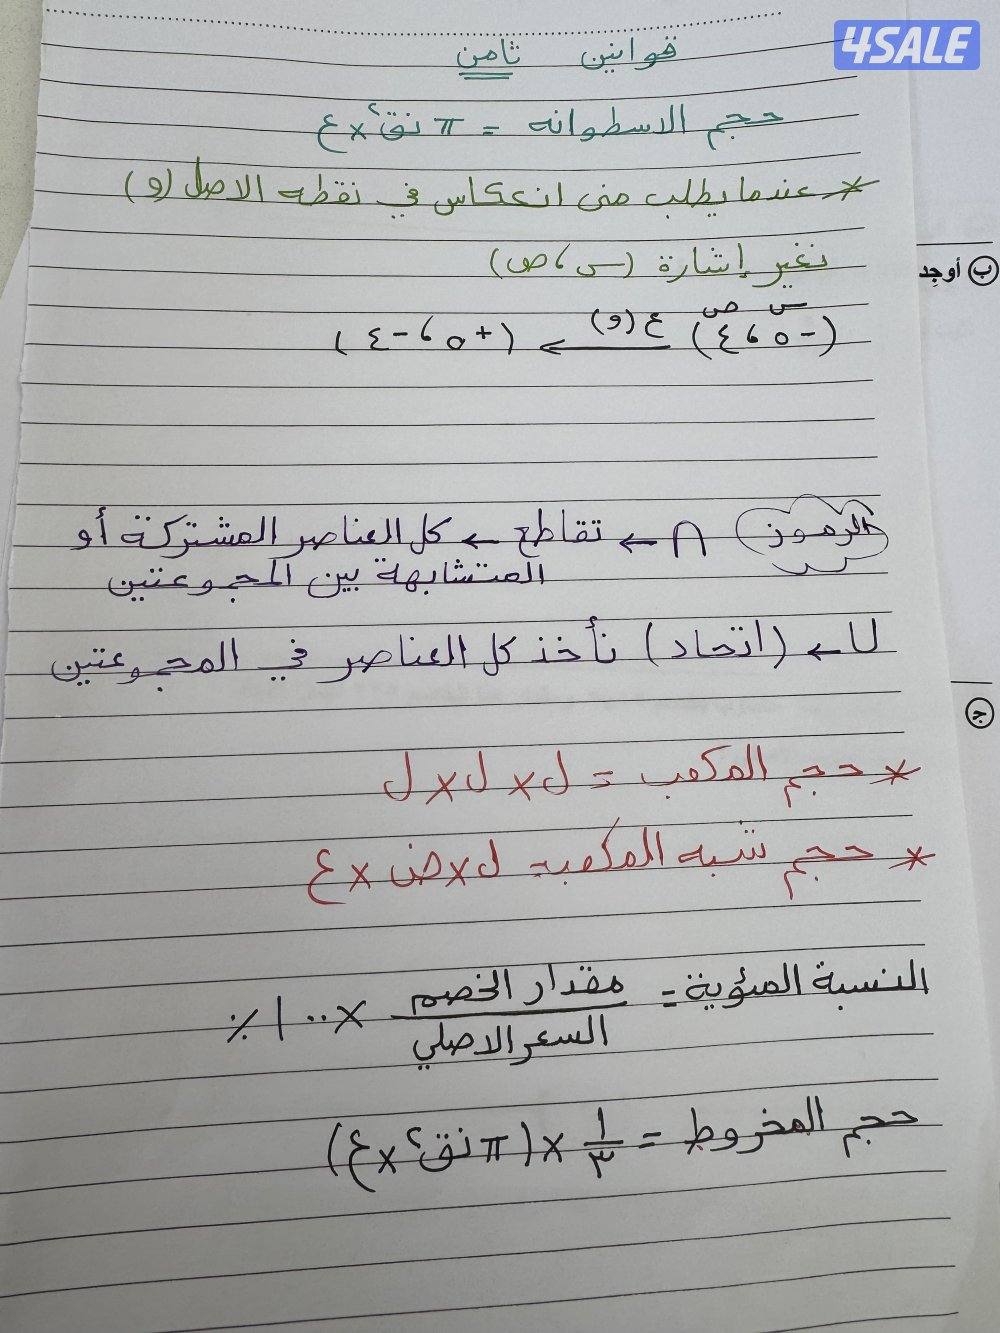 4SALE
قوانين ثامن
حجم الاسطوانه = π نق² × ع
* عندما يطلب منى انعكاس في نقطه الاصل (و)
نغير إشارة (س، ص)
ب أوجد
س ص
(-٥، ٤) ع (و) ← (+٥، -٤)
الرموز ∩ ← تقاطع ← كل العناصر المشتركة أو
المتشابهة بين المجوعتين
∪ ← (اتحاد) نأخذ كل العناصر في المجوعتين
ج
* حجم المكعب = ل × ل × ل
* حجم شبه المكعب = ل × ض × ع
النسبة المئوية = مقدار الخصم / السعر الاصلي × ١٠٠ ٪
حجم المخروط = ١/٣ × (π نق² × ع)